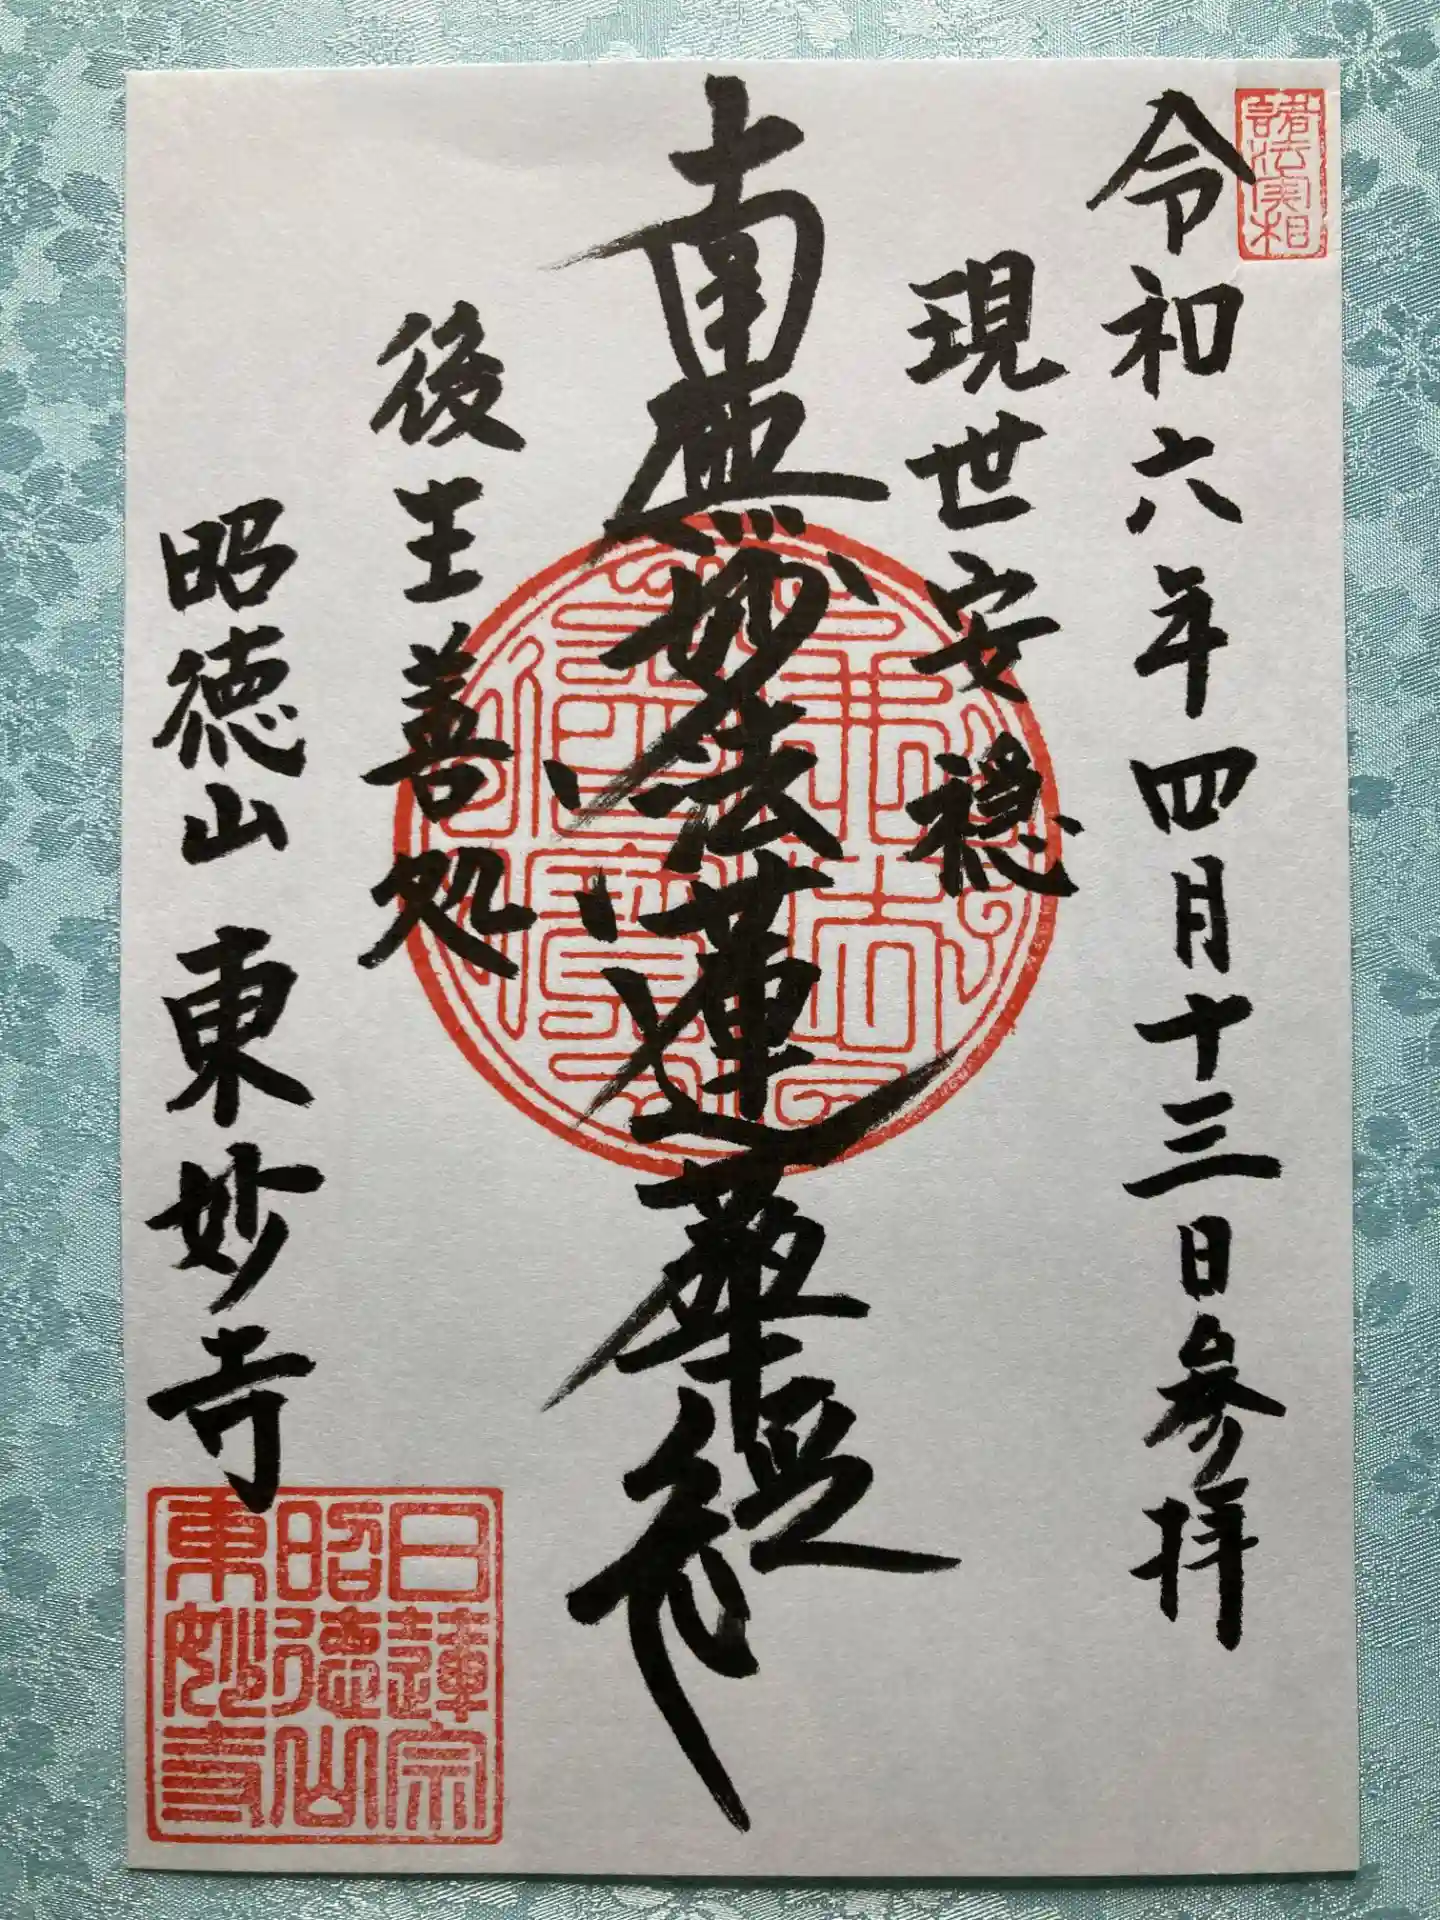 諸法実相
令和六年四月十三日参拝
現世安穏
南無妙法蓮華経
後生善処
昭徳山 東妙寺
日蓮宗
昭徳山
東妙寺